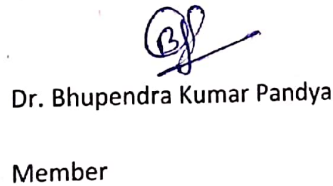 Dr. Bhupendra Kumar Pandya
Member